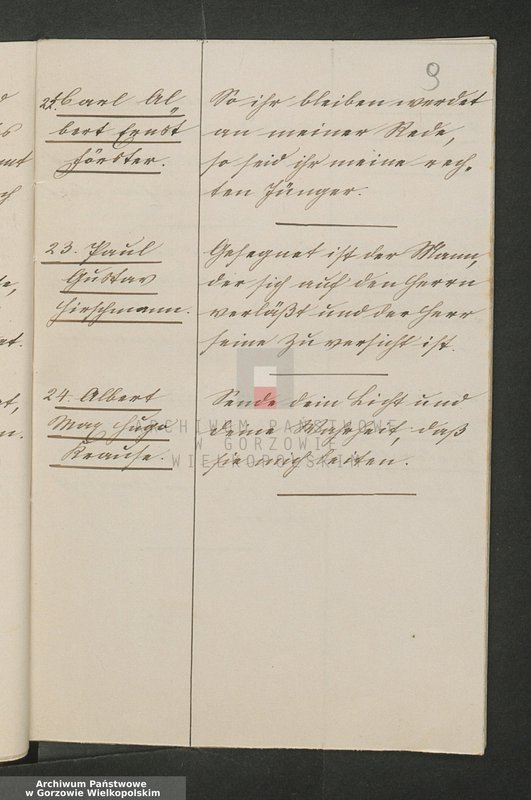 9
22. Carl Al„
bert Ernst
Förster.
So ihr bleiben werdet
an meiner Rede,
so seid ihr meine rech„
ten Jünger.
23. Paul
Gustav
Hirschmann.
Gesegnet ist der Mann,
der sich auf den Herrn
verläßt und der Herr
seine Zuversicht ist.
24. Albert
Max Hugo
Krause.
Sende dein Licht und
deine Wahrheit, daß
sie mich leiten.
ARCHIWUM PAŃSTWOWE
W GORZOWIE
WIELKOPOLSKIM
Archiwum Państwowe
w Gorzowie Wielkopolskim